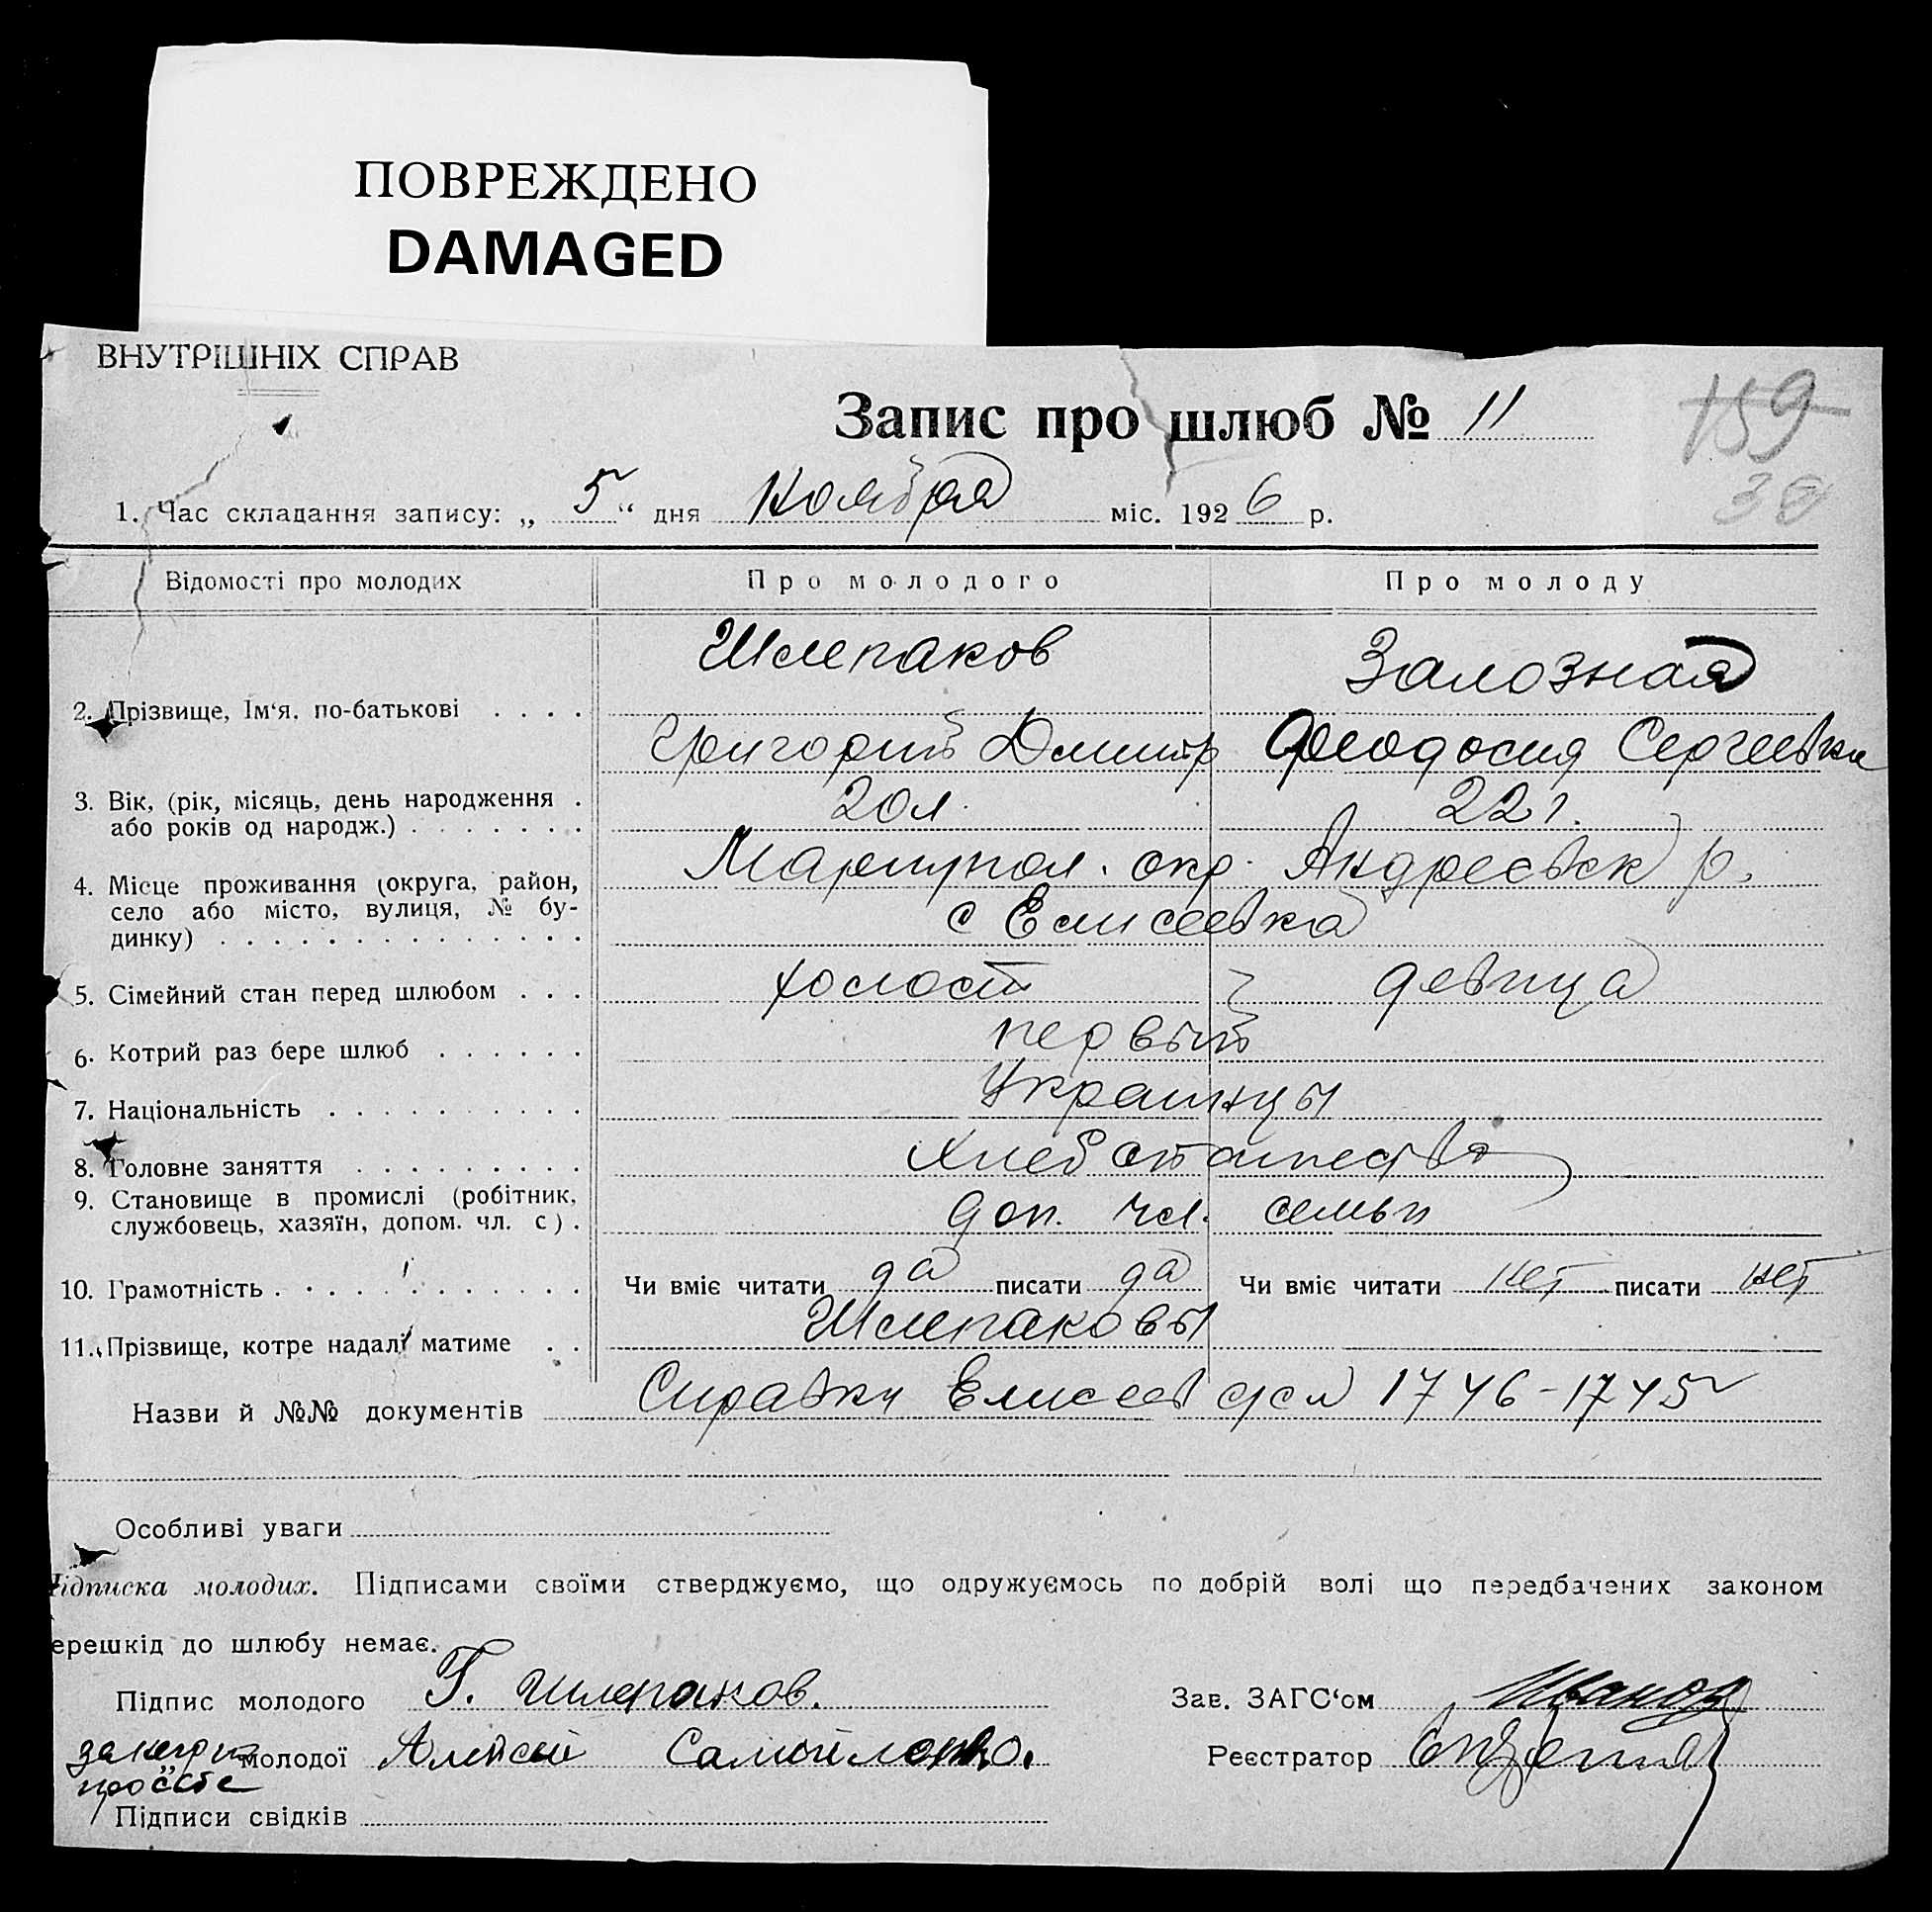 ПОВРЕЖДЕНО
DAMAGED
ВНУТРІШНІХ СПРАВ
Запис про шлюб № 11
159
38
1. Час складання запису: „ 5 “ дня Ноября міс. 1926 р.
Відомості про молодих Про молодого Про молоду
Шлепаков Залозная
2. Прізвище, Ім‘я, по-батькові . . . .
Григорий Дмитр Феодосия Сергеевна
3. Вік, (рік, місяць, день народження . 20 л. 22 г.
або років од народж.) . . . . . . .
Мариупол. окр. Андреевск р.
4. Місце проживання (округа, район,
село або місто, вулиця, № бу- с Елисеевка
динку) . . . . . . . . . . . . . .
5. Сімейний стан перед шлюбом . . . холост девица
6. Котрий раз бере шлюб . . . . . . первый
7. Національність . . . . . . . . . . Украинцы
8. Головне заняття . . . . . . . . . Хлебопашество
9. Становище в промислі (робітник,
службовець, хазяїн, допом. чл. с) . доп. чл. семьи
10. Грамотність . . . . . . . . . . . Чи вміє читати да писати да Чи вміє читати нет писати нет
11. Прізвище, котре надалі матиме . . Шлепаковы
Назви й №№ документів Справки Елисеев с/сл 1746-1745
Особливі уваги
Підписка молодих. Підписами своїми стверджуємо, що одружуємось по добрій волі що передбачених законом
ерешкід до шлюбу немає.
Підпис молодого Г. Шлепаков. Зав. ЗАГС‘ом Иванов
за негр по молодої Алексей Реєстратор
просьбе
Підписи свідків